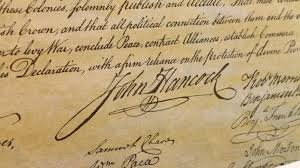 these Colonies, solemnly publish and declare, That
ish Crown, and that all political connection between them and the
to levy War, conclude Peace, contract Alliances, establish Comm
is Declaration, with a firm reliance on the protection of divine Prov
John Hancock
Robt Morri
Benjamin
Benj. Frankli
Samuel Chase
John Morton
Wm Paca